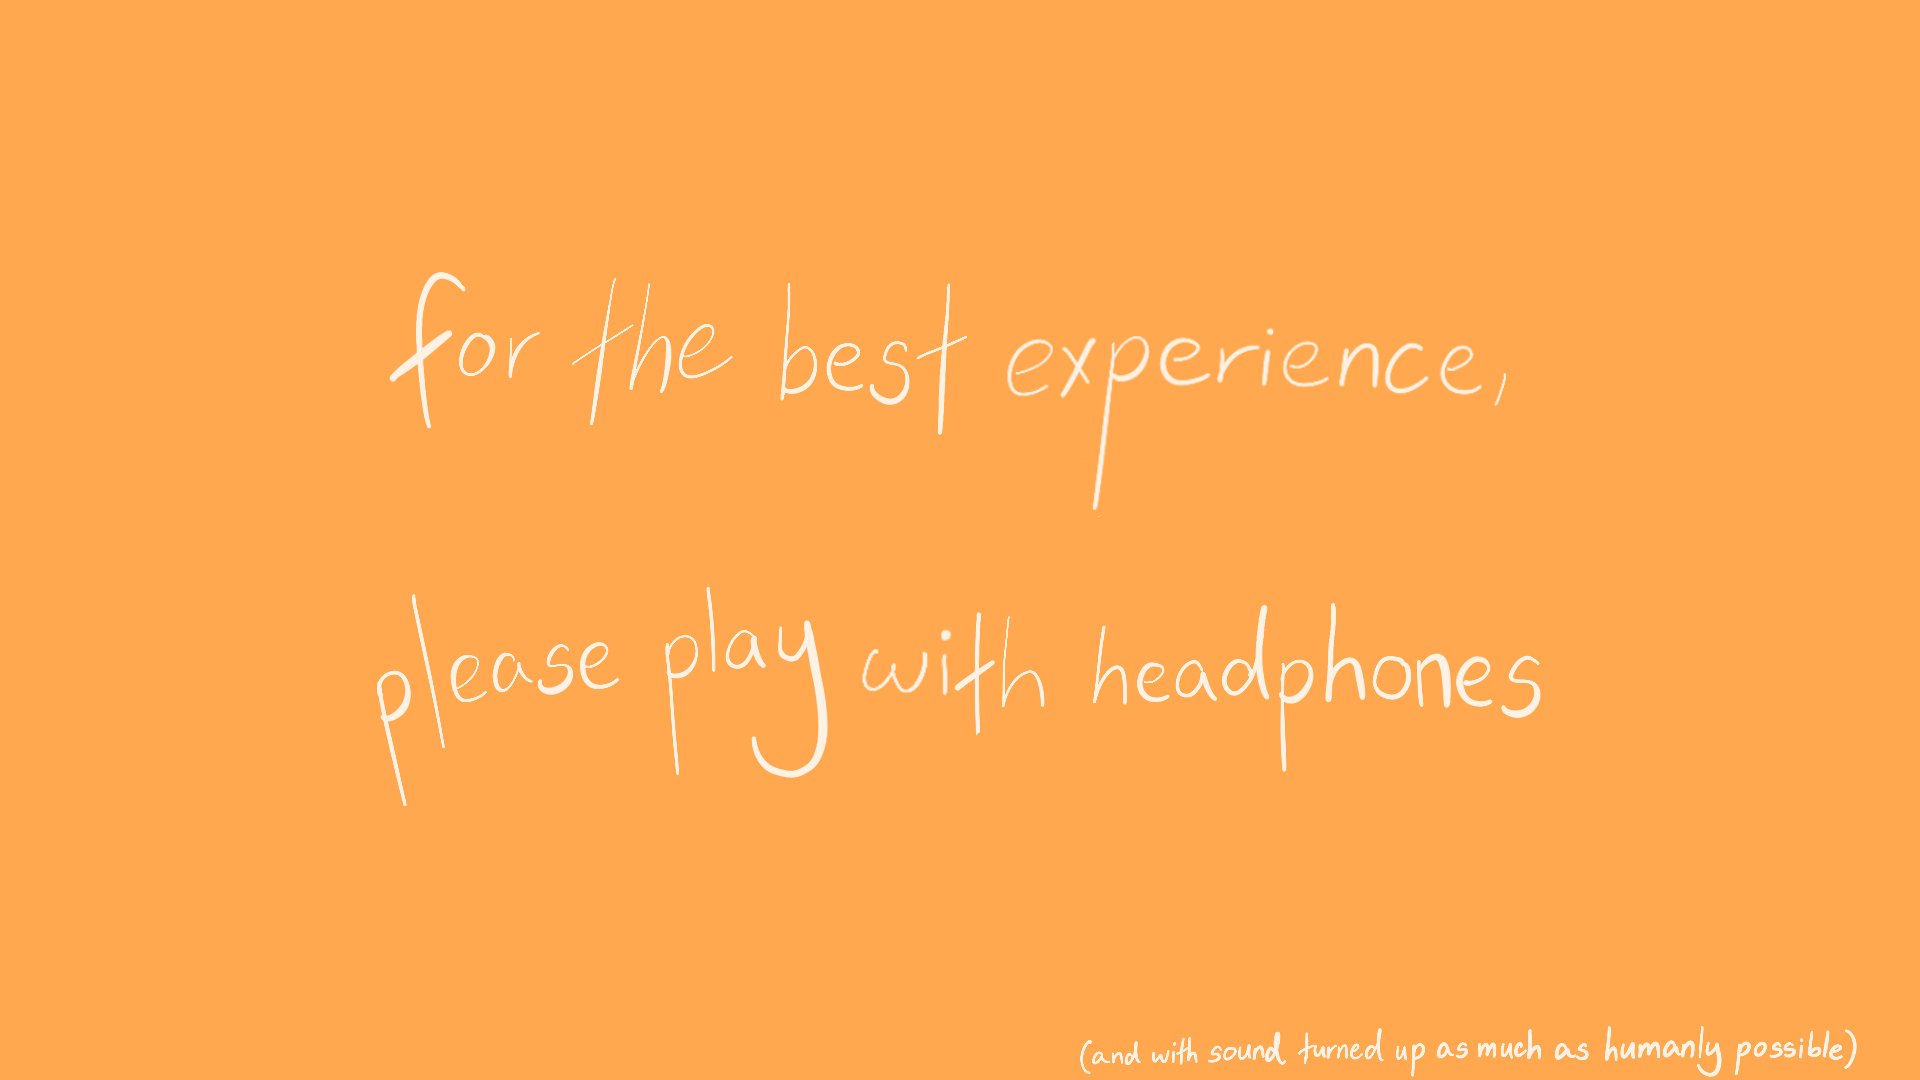 for the best experience,
please play with headphones
(and with sound turned up as much as humanly possible)